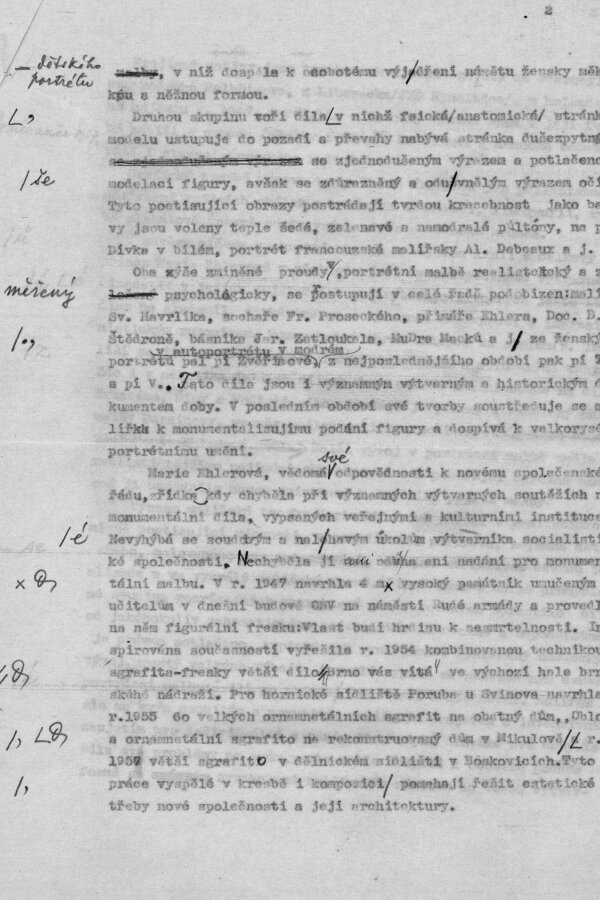 2
— dětského
portrétu
malby, v níž dospěla k osobotému vyjádření námětu žensky měk
kpu s něžnou formou.
L,
Druhou skupinu voří díla v nichž fsická/anatomická/ stránka
modelu ustupuje do pozadí a převahy nabývá stránka dušezpytná
se zjednodušeným výrazem se zjednodušeným výrazem a potlačeno
/še
modelací figury, avšak se zdůrazněný a odu/vnělým výrazem očí
Tyto poetisující obrazy postrádají tvrdou kresebnost jako ba
vy jsou voleny teple šedé, zelenavé a namodralé půltóny, na p
Dívka v bílém, portrét francouzské malířsky Al. Debeaux a j.
Oba zýše zmíněné proudy, portrétní malbě realistcký a z
měřený
psychologicky, se postupují v celé řadě podobizen:malí
Sv. Havrlíka, sochaře Fr. Proseckého, primáře Ehlera, Doc. B.
/.,
Štědroně, básníka Jar. Zatloukala, MuDra Macků a j/ ze ženský
v autoportrétu v modrém
portrétů pak pí Zvěřinové, z nejposlednějšího období pak pí T
a pí V.. Tato díla jsou i významným výtvarným a historickým d
kumentem doby. V posledním období své tvorby soustřeďuje se m
lířkh k monumentalisujímu podání figury a dospívá k velkorysé
portrétnímu umění.
své
Marie Ehlerová, vědoma odpovědnosti k novému společenské
řádu, zřídka kdy chyběla při významných výtvarných soutěžích n
monumentální díla, vypsaných veřejnými a kulturními instituce
/é
Nevyhýbá se soudným s nal/havým úkolům výtvarníka socialisti
ké společnosti. Nechyběla jí ani ani nadání pro monumen
x
tální malbu. V r. 1947 navrhla 4 m vysoký památník umučeným
učitelům v dnešní budově ONV na náměstí Rudé armády a provedl
na něm figurální fresku:Vlast budí hrdinu k nesmrtelnosti. In
spirována současností vyřešila r. 1954 kombinovanou technikou
sgrafita-fresky větší dílo Brno vás vítá ve východí hale brn
ského nádraží. Pro hornické sídliště Poruba u Svinova navrhla
r.1955 6o velkých ornamnetálních sgrafit na obytný dům,,Oblo
/,
a ornamnetální sgrafito na rekonstruovaný dům v Mikulově/L r.
1957 větší sgrafito v dělnickém sídlišti v Boskovicích.Tyto
/,
práce vyspělé v kresbě i komposici/ pomáhají řešit estetické
třeby nové společnosti a její architektury.